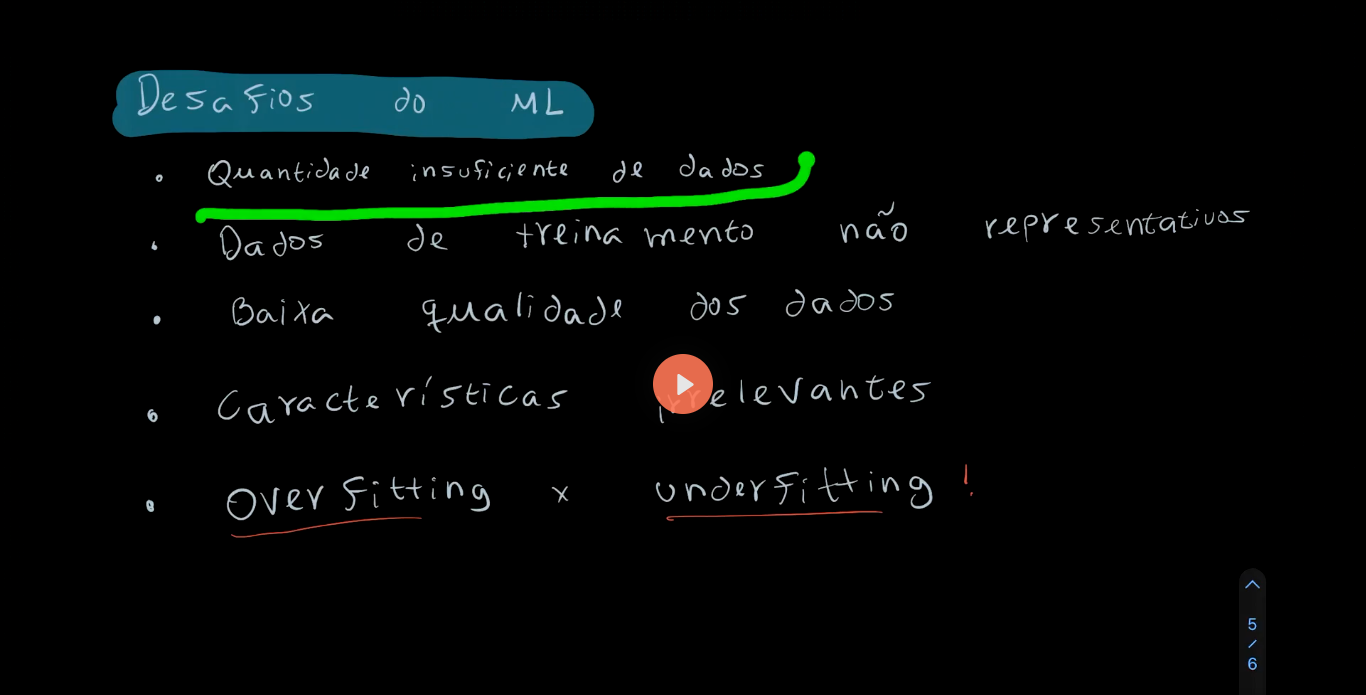 Desafios do ML
• Quantidade insuficiente de dados
• Dados de treinamento não representativos
• Baixa qualidade dos dados
• Características irrelevantes
• Overfitting x underfitting !
5
/
6